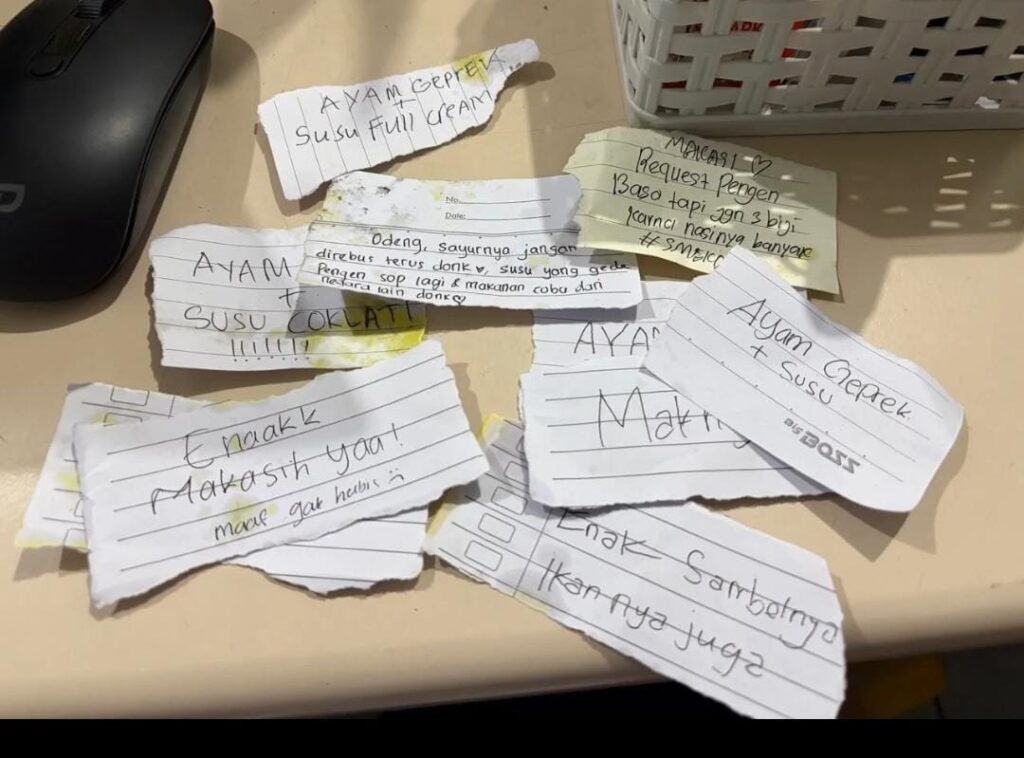 AYAM GEPREK...
+
SUSU FULL CREAM
MAKASI ♡
Request Pengen
Baso tapi jgn 3 biji
karna nasinya banyak
No.
Date:
Odeng, sayurnya jangan
direbus terus donk ♥, susu yang gede
Pengen sop lagi & makanan coba dari
negara lain donk♡
AYAM
+
SUSU COKLAT!
!!!!!!!
Ayam Geprek
+ susu
BIG BOSS
Enaakk
Makasih yaa!
maaf gak habis :(
Enak Sambelnya
Ikan nya juga